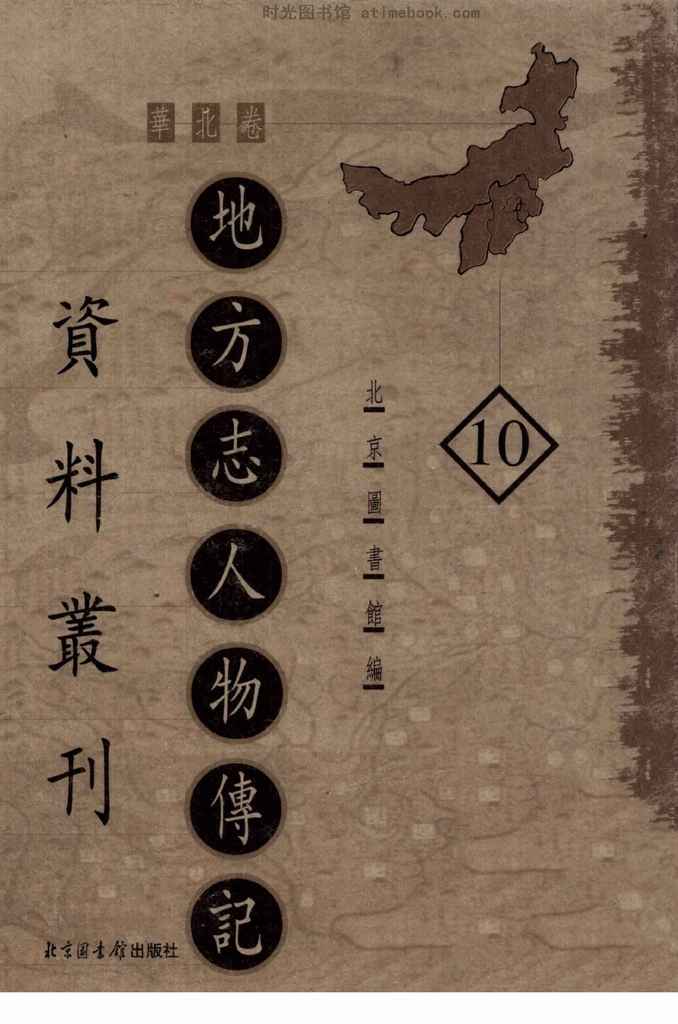 时光图书馆 atimebook.com
華北卷
地方志人物傳記
資料叢刊
北京圖書館編
10
北京图书馆出版社